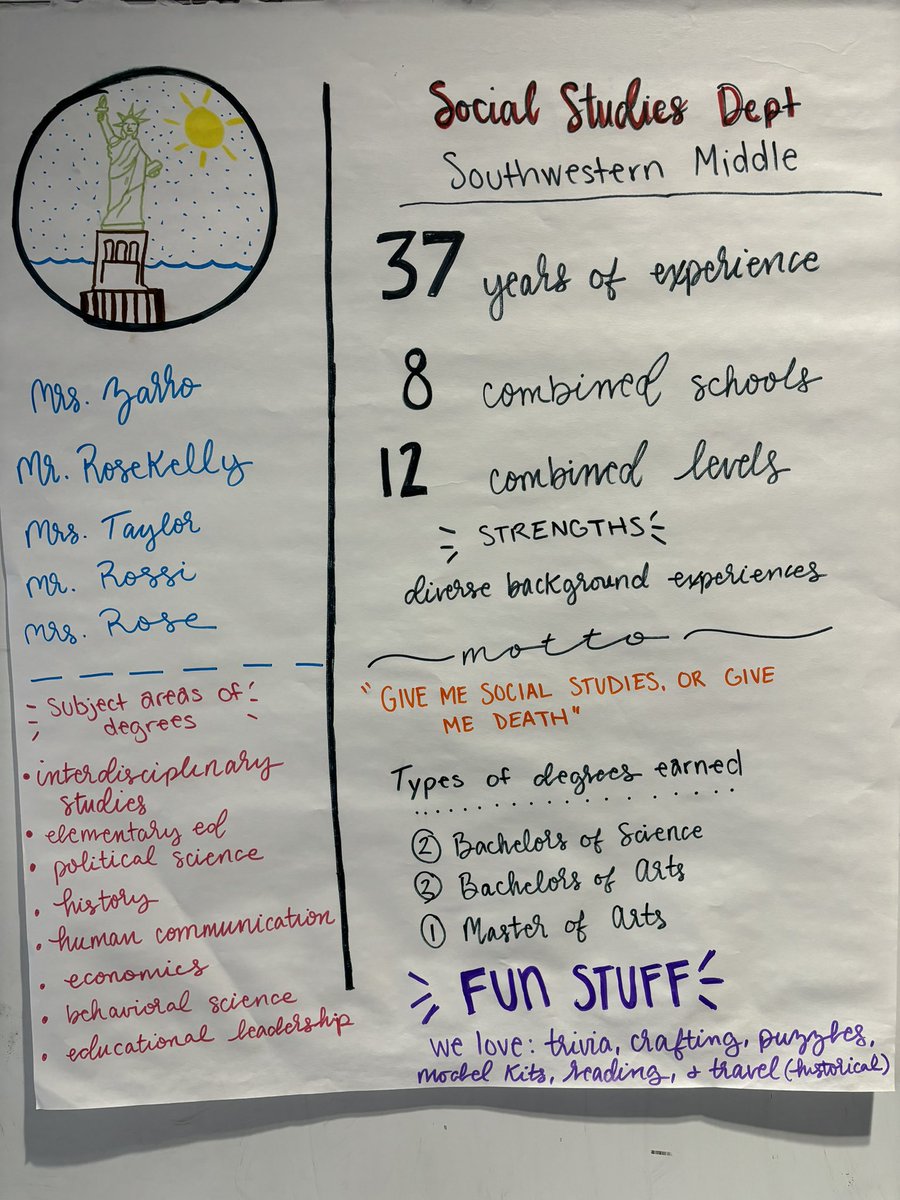 Social Studies Dept
Southwestern Middle
37 years of experience
8 combined schools
12 combined levels
STRENGTHS
diverse background experiences
motto
"GIVE ME SOCIAL STUDIES, OR GIVE
ME DEATH"
Types of degrees earned
② Bachelors of Science
③ Bachelors of Arts
① Master of Arts
FUN STUFF
we love: trivia, crafting, puzzles,
model kits, reading, & travel (historical)
Mrs. Zarro
Mr. RoseKelly
Mrs. Taylor
Mr. Rossi
Mrs. Rose
Subject areas of
degrees
• interdisciplinary
studies
• elementary ed
• political science
• history
• human communication
• economics
• behavioral science
• educational leadership